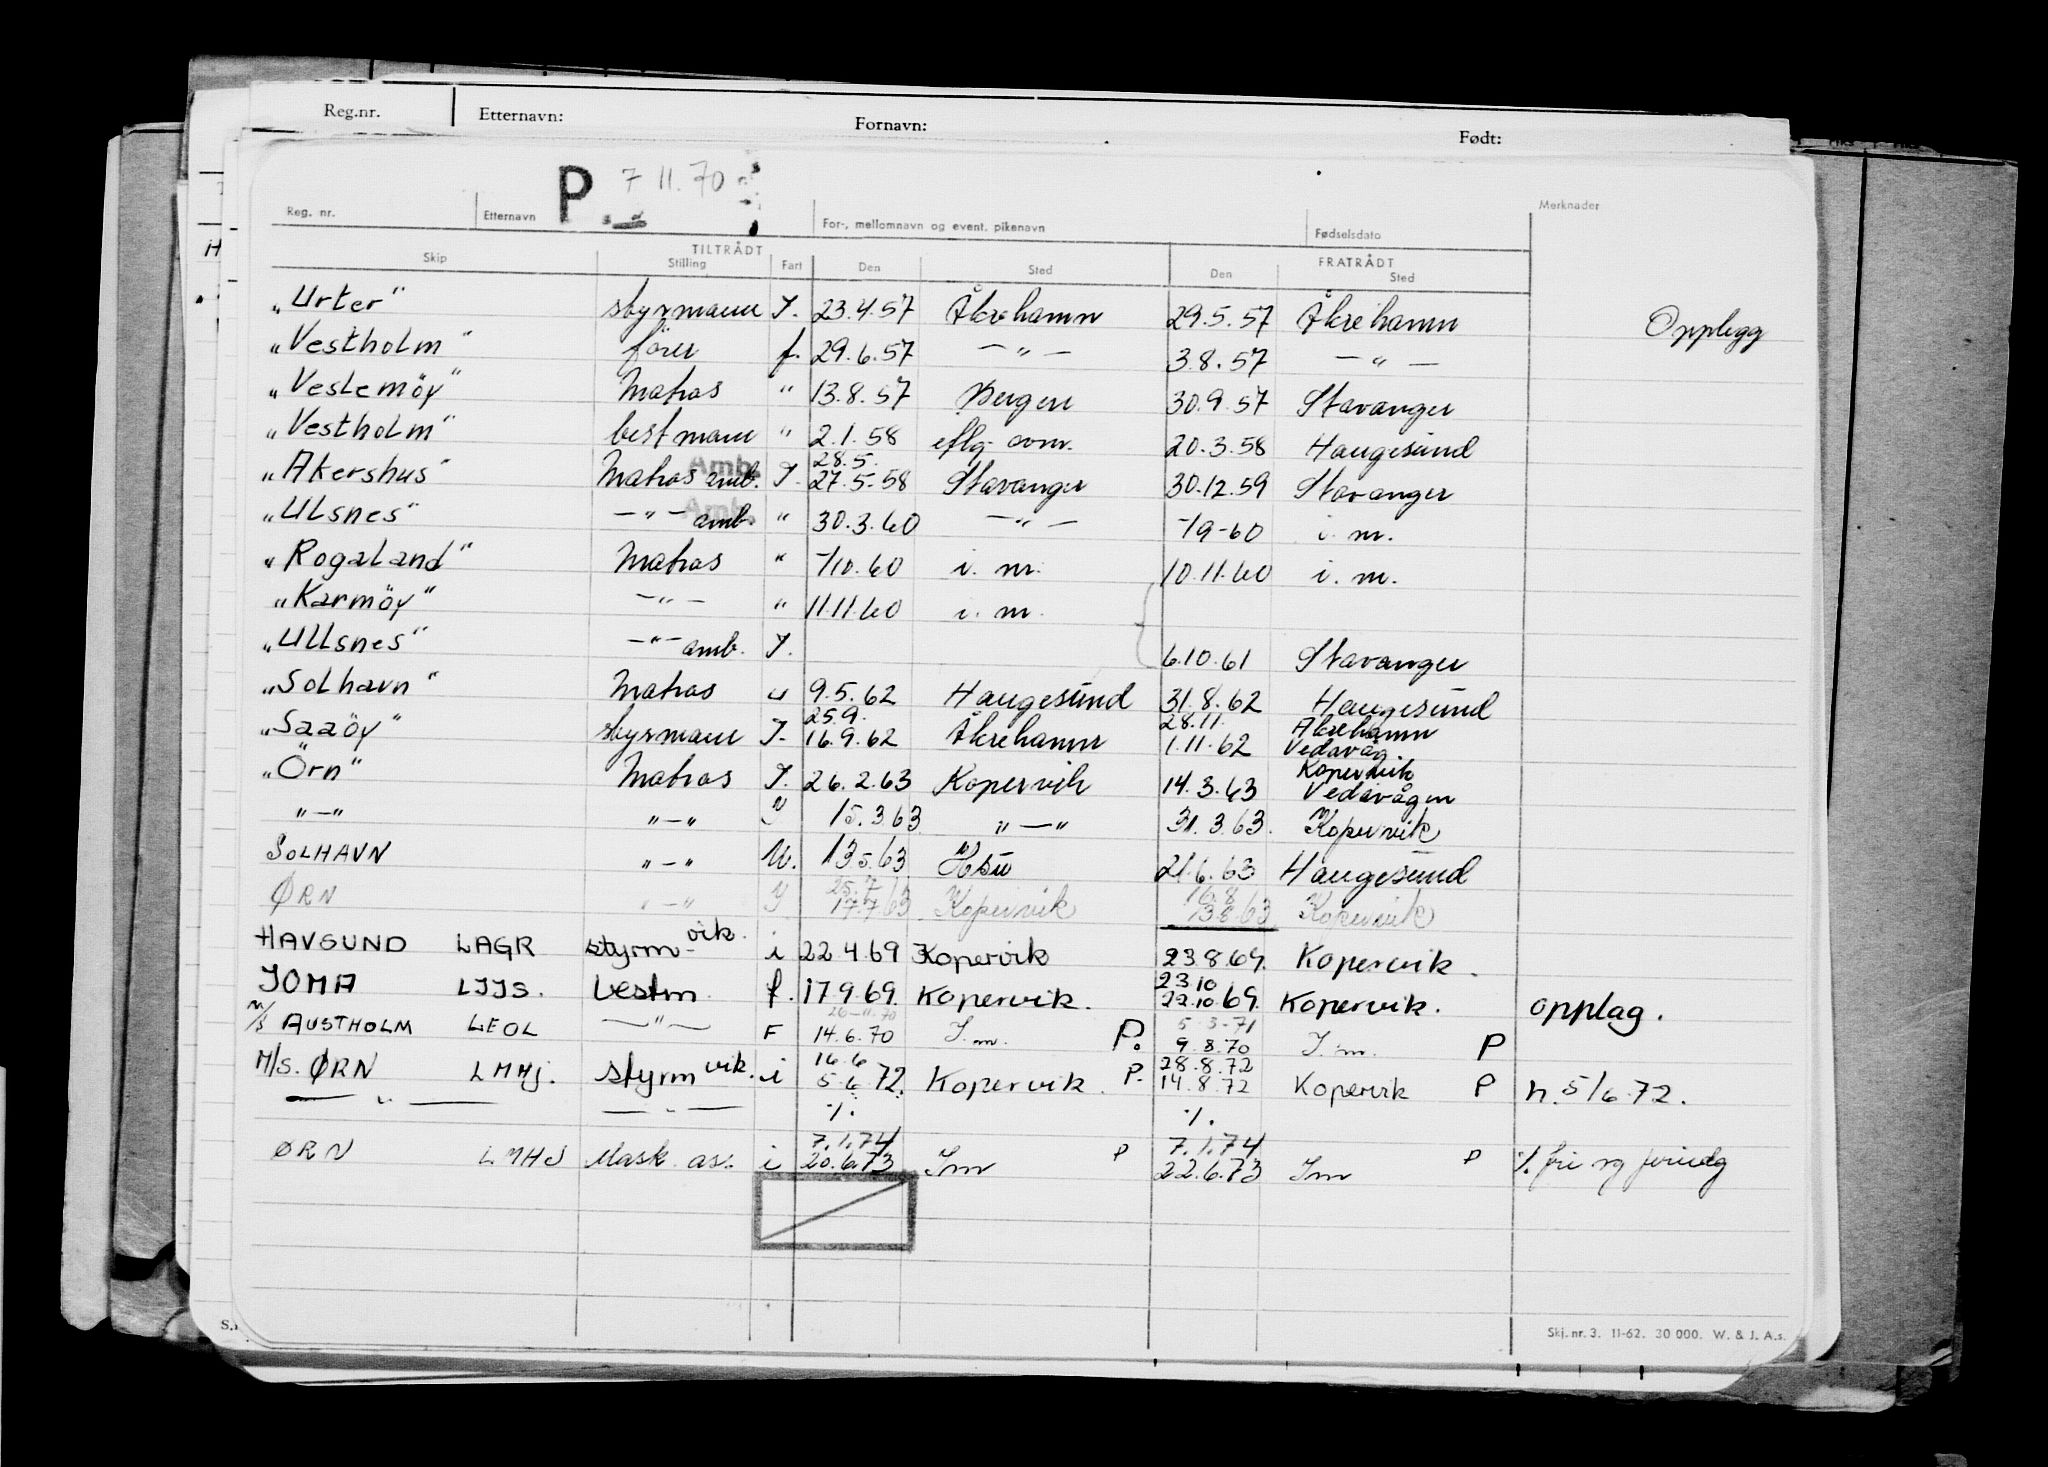 Reg.nr. Etternavn: Fornavn: Født:
P 7 11.70
Reg. nr. Etternavn For-, mellomnavn og event. pikenavn Fødselsdato Merknader
TILTRÅDT FRATRÅDT
Skip Stilling Fart Den Sted Den Sted
„Urter" styrmann I. 23.4.57 Åkrehamn 29.5.57 Åkrehamn Opplegg
„Vestholm" fører f. 29.6.57 — " — 3.8.57 — " —
„Vestemöy" Matros " 13.8.57 Bergen 30.9.57 Stavanger
„Vestholm" bestmann " 2.1.58 eflg. om. 20.3.58 Haugesund
Amb. 28.5.
„Akershus" Matros amb. I. 27.5.58 Stavanger 30.12.59 Stavanger
Amb.
„Ulsnes" — " — amb. " 30.3.60 — " — -/9-60 i. m.
„Rogaland" Matros " -/10.60 i. m. 10.11.60 i. m.
„Karmöy" — " — " 11.11.60 i. m.
„Ullsnes" — " — amb. I. 6.10.61 Stavanger
„Solhavn" Matros u 9.5.62 Haugesund 31.8.62 Haugesund
25.9. 28.11. Åkrehamn
„Saaöy" styrmann I. 16.9.62 Åkrehamn 1.11.62 Vedavåg.
Kopervik
„Örn" Matros I. 26.2.63 Kopervik 14.3.63 Vedavågen
" — " " — " I 15.3.63 " — " 31.3.63. Kopervik
SOLHAVN " — " U. 13.5.63 21.6.63 Haugesund
25.7 16.8
ØRN " — " I 17.7.63 Kopervik 13.8.63 Kopervik
HAVSUND LAGR styrm-vik. i 22 4.69 Kopervik 23.8.69. Kopervik.
23 10
JOMA LJJS. bestm. f. 17 9.69. Kopervik. 22.10.69. Kopervik. opplag.
26-11.70 5.3-71
M/S AUSTHOLM LEOL — " — F 14.6.70 I.m. P. 9.8.70 I.m. P
16.6 28.8.72
M/S. ØRN LMHJ. styrm vik. i 5.6.72. Kopervik. P. 14.8.72 Kopervik P h. 5/6.72.
— " — — " — %. %.
7.1.74 7.1.74
ØRN LMHJ Mask. as. i 20.6.73 Im P 22.6.73 Im P %. fri og
Skj. nr. 3. 11-62. 30 000. W. & J. A.s.